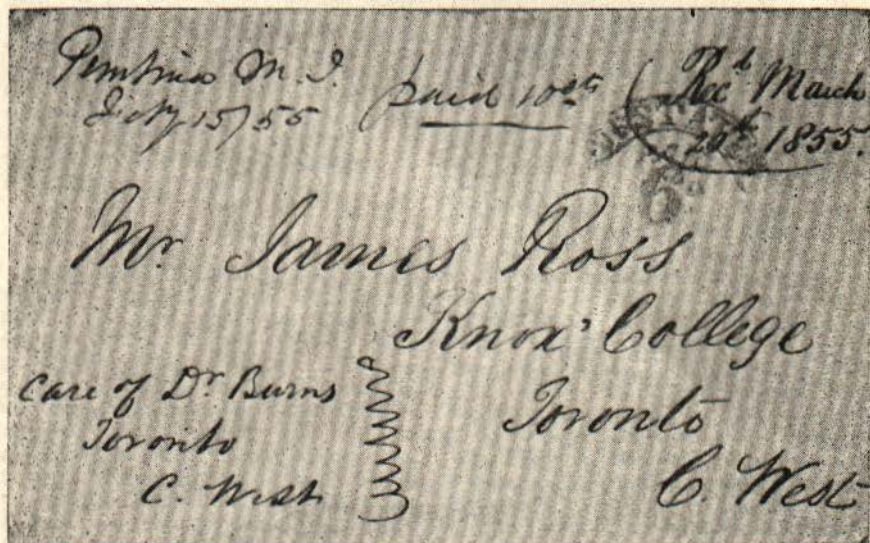 Pembina M. T.
Feby 15/55
paid 10cts
Recd March
29th 1855.
6d
Mr. James Ross
Knox' College
Toronto
C. West
Care of Dr. Burns
Toronto
C. West